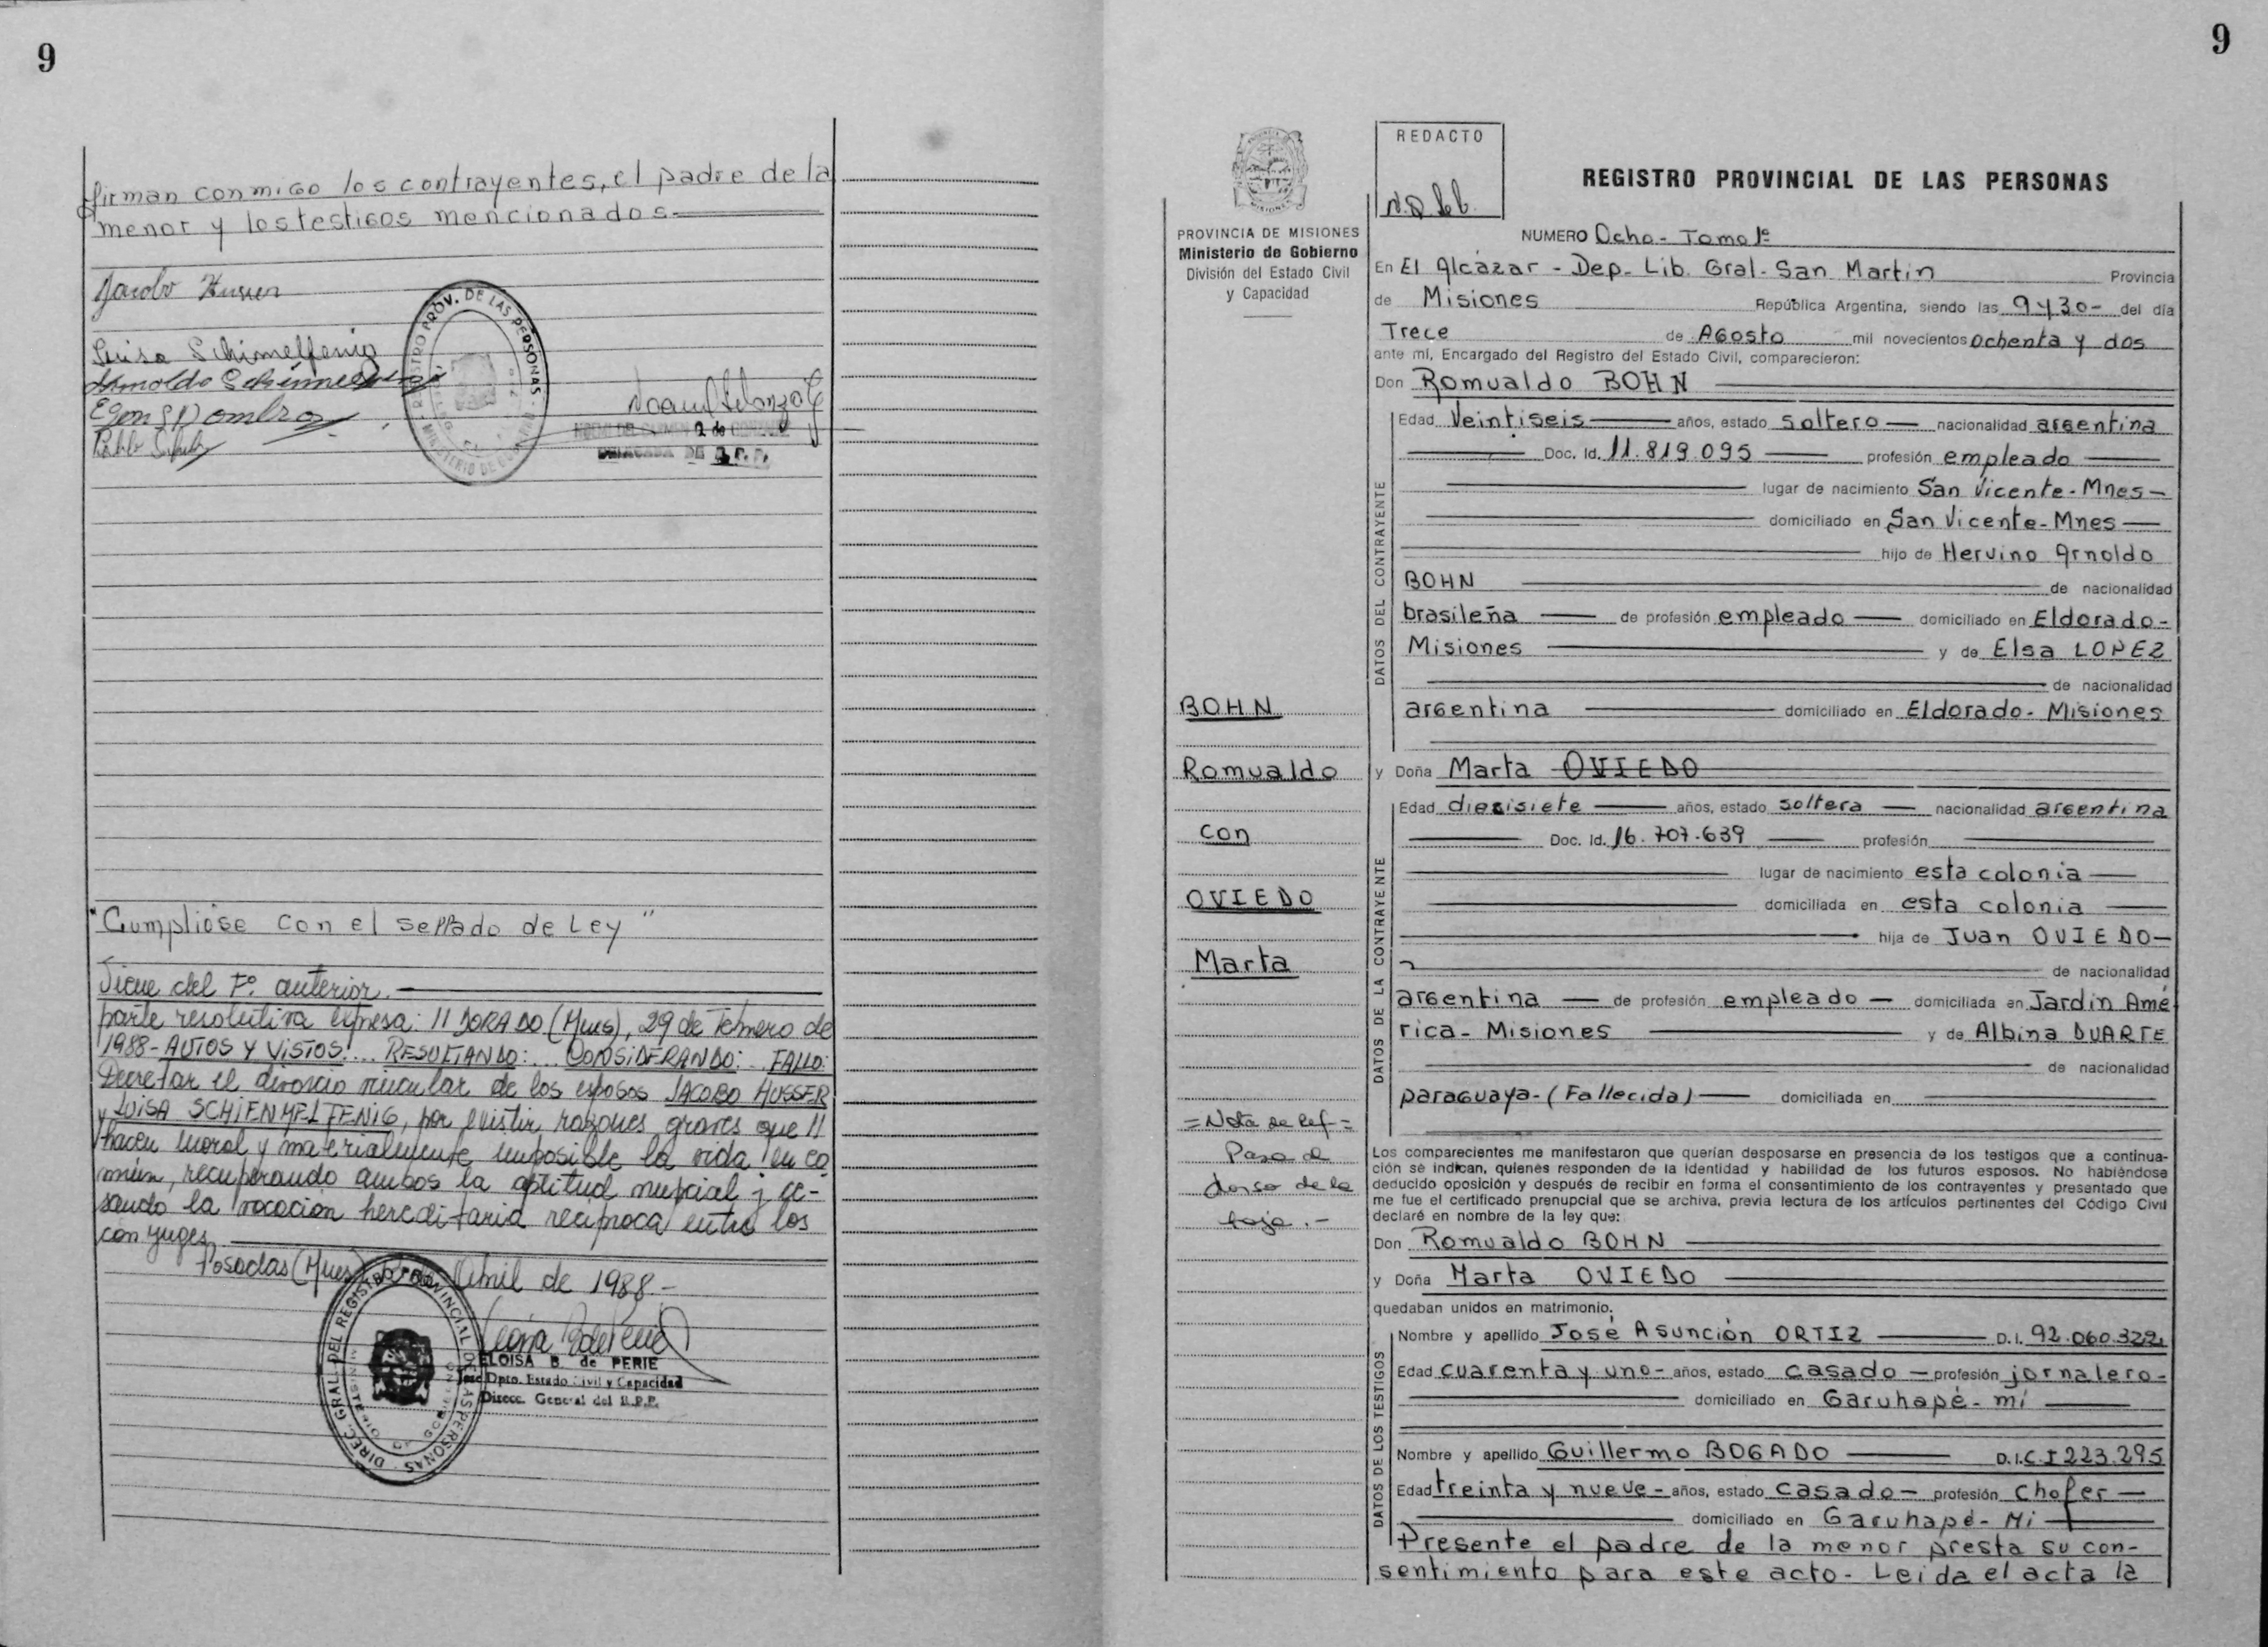 9
firman conmigo los contrayentes, el padre de la
menor y los testigos mencionados
Jacobo Husser
Luisa Schimelfenig
Arnoldo
Egon
Pablo
REGISTRO PROV. DE LAS PERSONAS
2 de
DELEGADA DE R.P.P.
"Cumplióse con el sellado de Ley"
Viene del Fº. anterior.
parte resolutiva expresa: ELDORADO (Mnes), 29 de Febrero de
1988- AUTOS Y VISTOS:... RESULTANDO:... CONSIDERANDO:... FALLO:
Decretar el divorcio vincular de los esposos JACOBO HUSSER
y LUISA SCHIENMELFENIG, por existir razones graves que
hacen moral y materialmente imposible la vida en co
mún, recuperando ambos la aptitud nupcial y ce-
sando la vocación hereditaria recíproca entre los
conyuges
Posadas (Mnes) Abril de 1988.-
DIREC. GRAL. DEL REGISTRO PROVINCIAL DE LAS PERSONAS
ELOISA B. de PERIE
Jefe Dpto. Estado Civil y Capacidad
Direcc. General del R.P.P.
9
PROVINCIA DE MISIONES
Ministerio de Gobierno
División del Estado Civil
y Capacidad
REDACTO
REGISTRO PROVINCIAL DE LAS PERSONAS
NUMERO Ocho- Tomo 1º
En El Alcázar - Dep- Lib. Gral- San Martín Provincia
de Misiones República Argentina, siendo las 9 y 30- del día
Trece de Agosto mil novecientos ochenta y dos
ante mí, Encargado del Registro del Estado Civil, comparecieron:
Don Romualdo BOHN
DATOS DEL CONTRAYENTE
Edad Veintiseis años, estado soltero nacionalidad argentina
Doc. Id. 11.819.095 profesión empleado
lugar de nacimiento San Vicente- Mnes-
domiciliado en San Vicente- Mnes
hijo de Hervino Arnoldo
BOHN de nacionalidad
brasileña de profesión empleado domiciliado en Eldorado-
Misiones y de Elsa LOPEZ
de nacionalidad
argentina domiciliado en Eldorado- Misiones
BOHN
Romualdo
con
OVIEDO
Marta
y Doña Marta OVIEDO
DATOS DE LA CONTRAYENTE
Edad diecisiete años, estado soltera nacionalidad argentina
Doc. Id. 16.707.639 profesión
lugar de nacimiento esta colonia
domiciliada en esta colonia
hija de Juan OVIEDO-
de nacionalidad
argentina de profesión empleado domiciliada en Jardín Amé
rica- Misiones y de Albina DUARTE
de nacionalidad
paraguaya- (Fallecida) domiciliada en
= Nota de ref =
Pasa al
dorso de la
hoja.-
Los comparecientes me manifestaron que querían desposarse en presencia de los testigos que a continua-
ción se indican, quienes responden de la identidad y habilidad de los futuros esposos. No habiéndose
deducido oposición y después de recibir en forma el consentimiento de los contrayentes y presentado que
me fue el certificado prenupcial que se archiva, previa lectura de los artículos pertinentes del Código Civil
declaré en nombre de la ley que:
Don Romualdo BOHN
y Doña Marta OVIEDO
quedaban unidos en matrimonio.
DATOS DE LOS TESTIGOS
Nombre y apellido José Asunción ORTIZ D.I. 92.060.322
Edad cuarenta y uno- años, estado casado profesión jornalero-
domiciliado en Garuhapé- mí
Nombre y apellido Guillermo BOGADO D.I. C.I 223.295
Edad treinta y nueve- años, estado casado- profesión chofer
domiciliado en Garuhapé- Mí
Presente el padre de la menor presta su con-
sentimiento para este acto- Leída el acta la